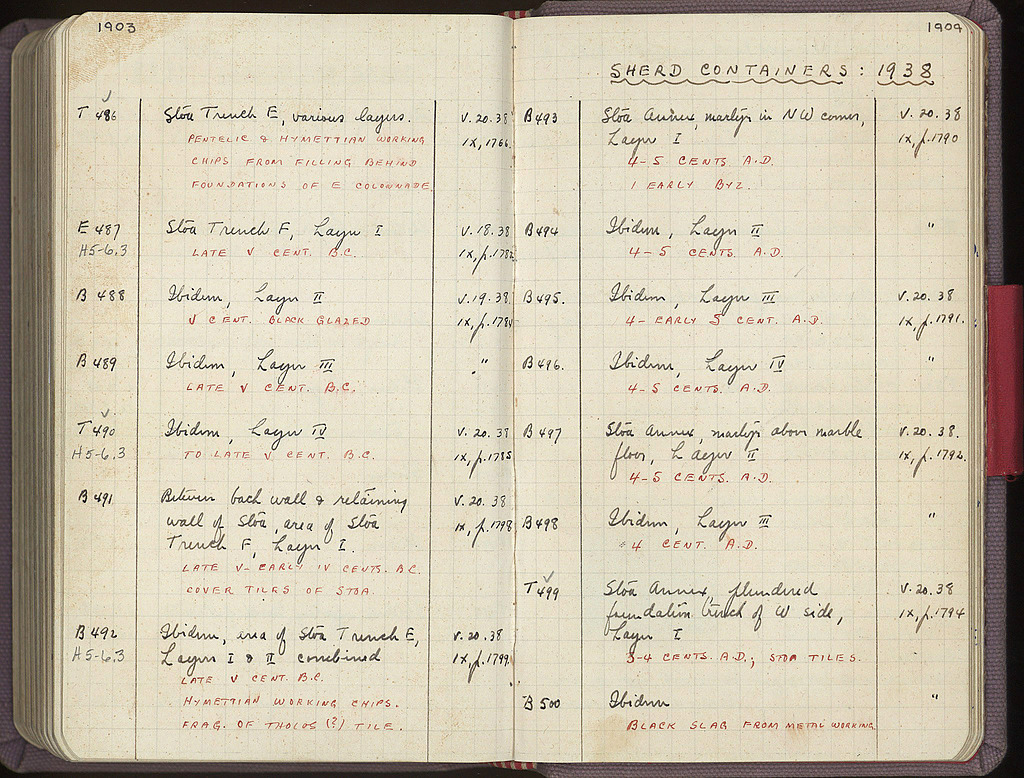 1903
T 486 Stoa Trench E, various layers. V. 20. 38
PENTELIC & HYMETTIAN WORKING IX, 1766.
CHIPS FROM FILLING BEHIND
FOUNDATIONS OF E COLONNADE
E 487 Stoa Trench F, Layer I V. 18. 38
H5-6.3 LATE V CENT. B.C. IX, p. 1782
B 488 Ibidem, Layer II V. 19. 38
V CENT. BLACK GLAZED IX, p. 1784
B 489 Ibidem, Layer III "
LATE V CENT. B.C.
T 490 Ibidem, Layer IV V. 20. 38
H5-6.3 TO LATE V CENT. B.C. IX, p. 1785
B 491 Between back wall & retaining V. 20. 38
wall of Stoa, area of Stoa IX, p. 1798
Trench F, Layer I.
LATE V-EARLY IV CENTS. B.C.
COVER TILES OF STOA.
B 492 Ibidem, area of Stoa Trench E, V. 20. 38
H5-6.3 Layers I & II combined IX, p. 1799
LATE V CENT. B.C.
HYMETTIAN WORKING CHIPS.
FRAG. OF THOLOS (?) TILE.
1904
SHERD CONTAINERS: 1938
B 493 Stoa Annex, martyr in NW corner, V. 20. 38
Layer I IX, p. 1790
4-5 CENTS A.D.
1 EARLY BYZ.
B 494 Ibidem, Layer II "
4-5 CENTS. A.D.
B 495. Ibidem, Layer III V. 20. 38
4-EARLY 5 CENT. A.D. IX, p. 1791.
B 496. Ibidem, Layer IV "
4-5 CENTS. A.D.
B 497 Stoa Annex, martyr above marble V. 20. 38.
floor, Layer II IX, p. 1792.
4-5 CENTS. A.D.
B 498 Ibidem, Layer III "
4 CENT. A.D.
T 499 Stoa Annex, plundered V. 20. 38
foundation trench of W side, IX, p. 1794
Layer I
3-4 CENTS. A.D.; STOA TILES.
B 500 Ibidem "
BLACK SLAG FROM METAL WORKING